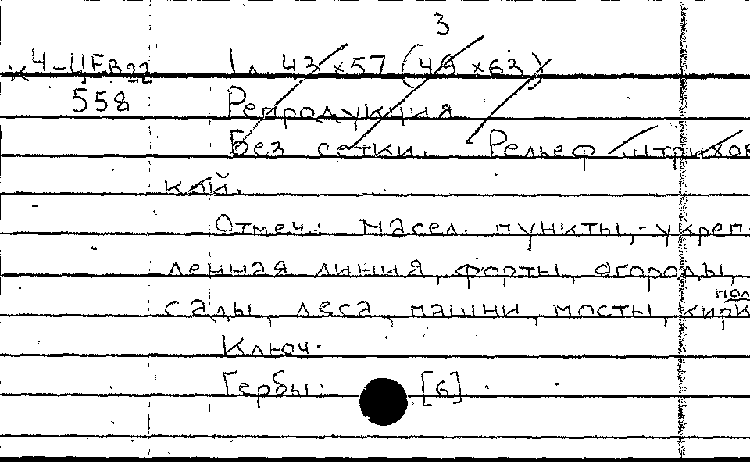 3
К 4-ЦЕВ22 1 л. 43 х57 (49 х63)
558 Репродукция
Без сетки. Рельеф штрихов
кой.
Отмеч.: насел. пункты, укреп
ленная линия, форты, огороды,
сады, леса, пашни, мосты, кирк
Ключ.
Гербы: [6]